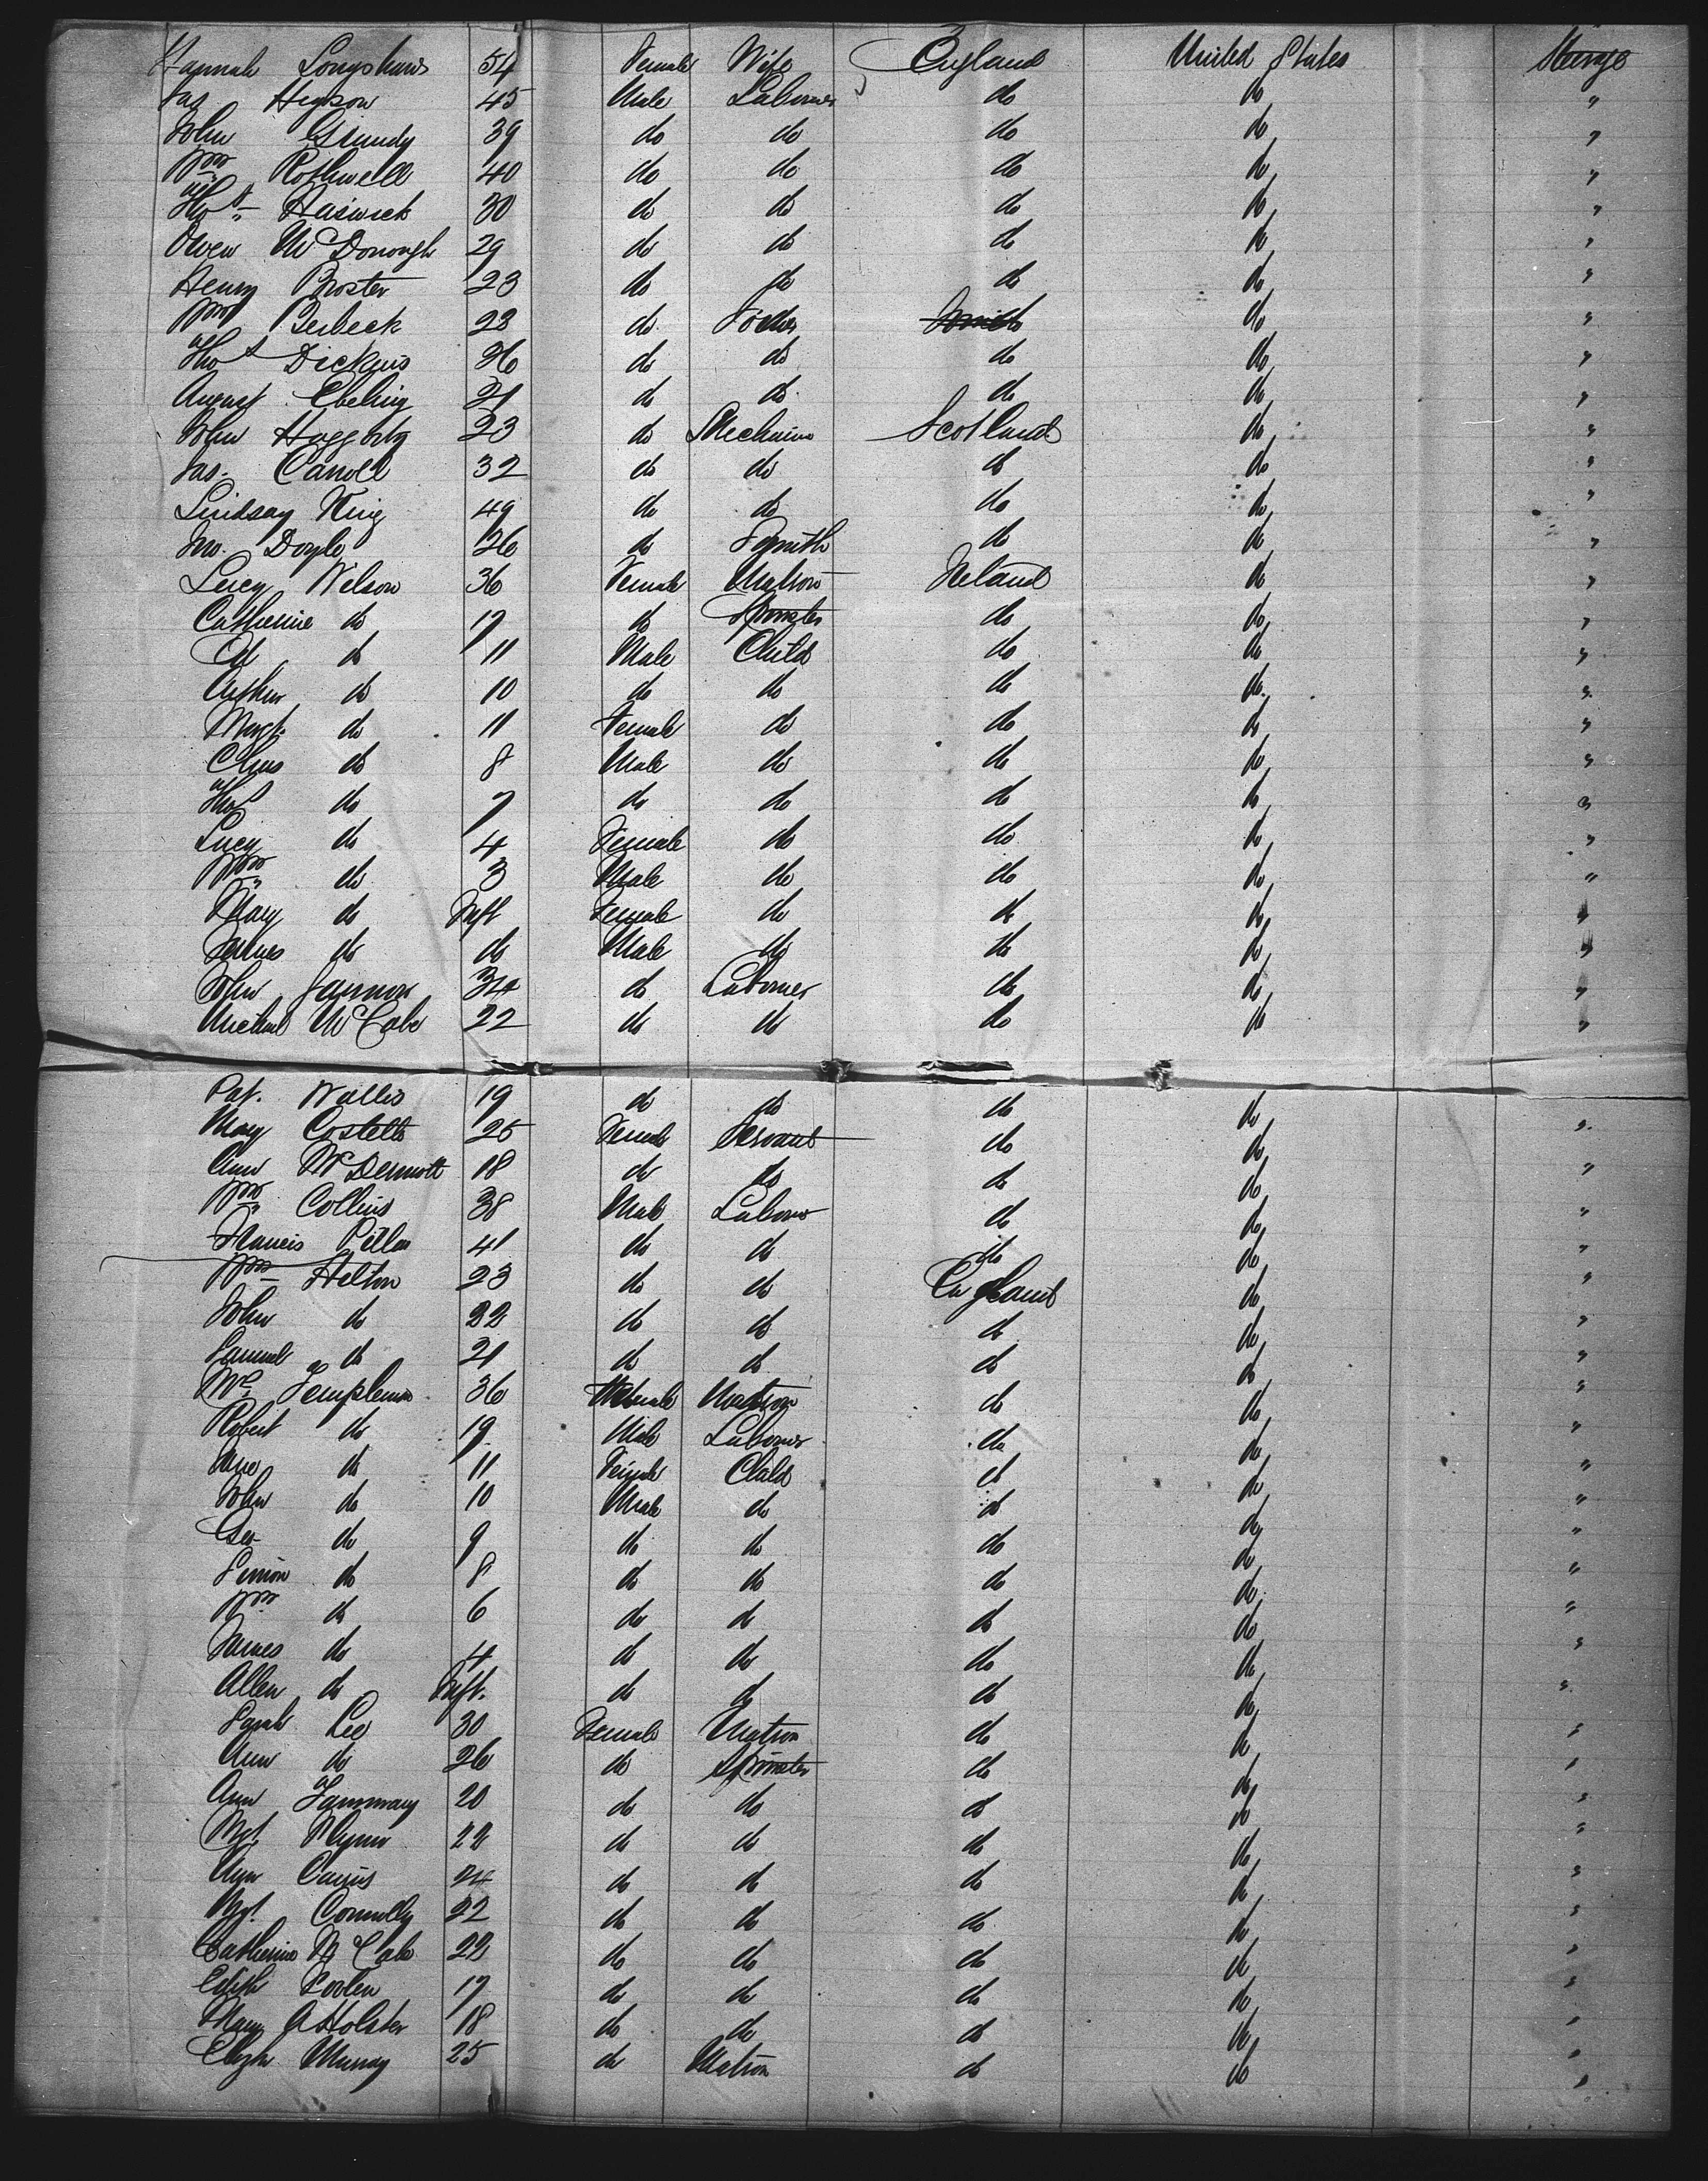 Hannah Longshaws 54 Female Wife England United States Steerage
Jas Higson 45 Male Laborer do do "
John Grundy 39 do do do do "
Wm Rothwell 40 do do do do "
Thos Haswick 30 do do do do "
Owen McDonough 29 do do do do "
Henry Broster 23 do do do do "
Wm Berbeck 23 do do "
Thos Dickens 26 do do do do "
August Ebeling 21 do do do do "
John Haggerty 23 do Mechanic Scotland do "
Jas. Carroll 32 do do do do "
Lindsay King 49 do do do do "
Jno. Doyle 26 do Smith do do "
Lucy Nelson 36 Female Matron Ireland do "
Catherine do 17 do Spinster do do "
Ed do 11 Male Child do do "
Arthur do 10 do do do do "
Margt. do 11 Female do do do "
Chas do 8 Male do do do "
Thos do 7 do do do do "
Lucy do 4 Female do do do "
Wm do 3 Male do do do "
Mary do Inft Female do do do "
James do do Male do do do "
John Gannon 34 do Laborer do do "
Michael McCabe 22 do do do do "
Pat. Wallis 19 do do do do "
Mary Costello 25 Female Servant do do "
Ann McDermott 18 do do do do "
Wm Collins 38 Male Laborer do do "
Francis 41 do do do do "
Wm Helton 23 do do England do "
John do 22 do do do do "
Samuel do 21 do do do do "
Templeman 36 Female Matron do do "
Robert do 19 Male Laborer do do "
Jane do 11 Female Child do do "
John do 10 Male do do do "
Geo do 9 do do do do "
Simon do 8 do do do do "
Wm do 6 do do do do "
James do 4 do do do do "
Allen do Inft. do do do do "
Sarah Lee 30 Female Matron do do "
Ann do 26 do Spinster do do "
Ann 20 do do do do "
Mgt. Flynn 22 do do do do "
Ann Cairns 24 do do do do "
Mgt. Connolly 22 do do do do "
Catherine McCabe 22 do do do do "
Edith 17 do do do do "
Mary A Holster 18 do do do do "
Eliza Murray 25 do Matron do do "